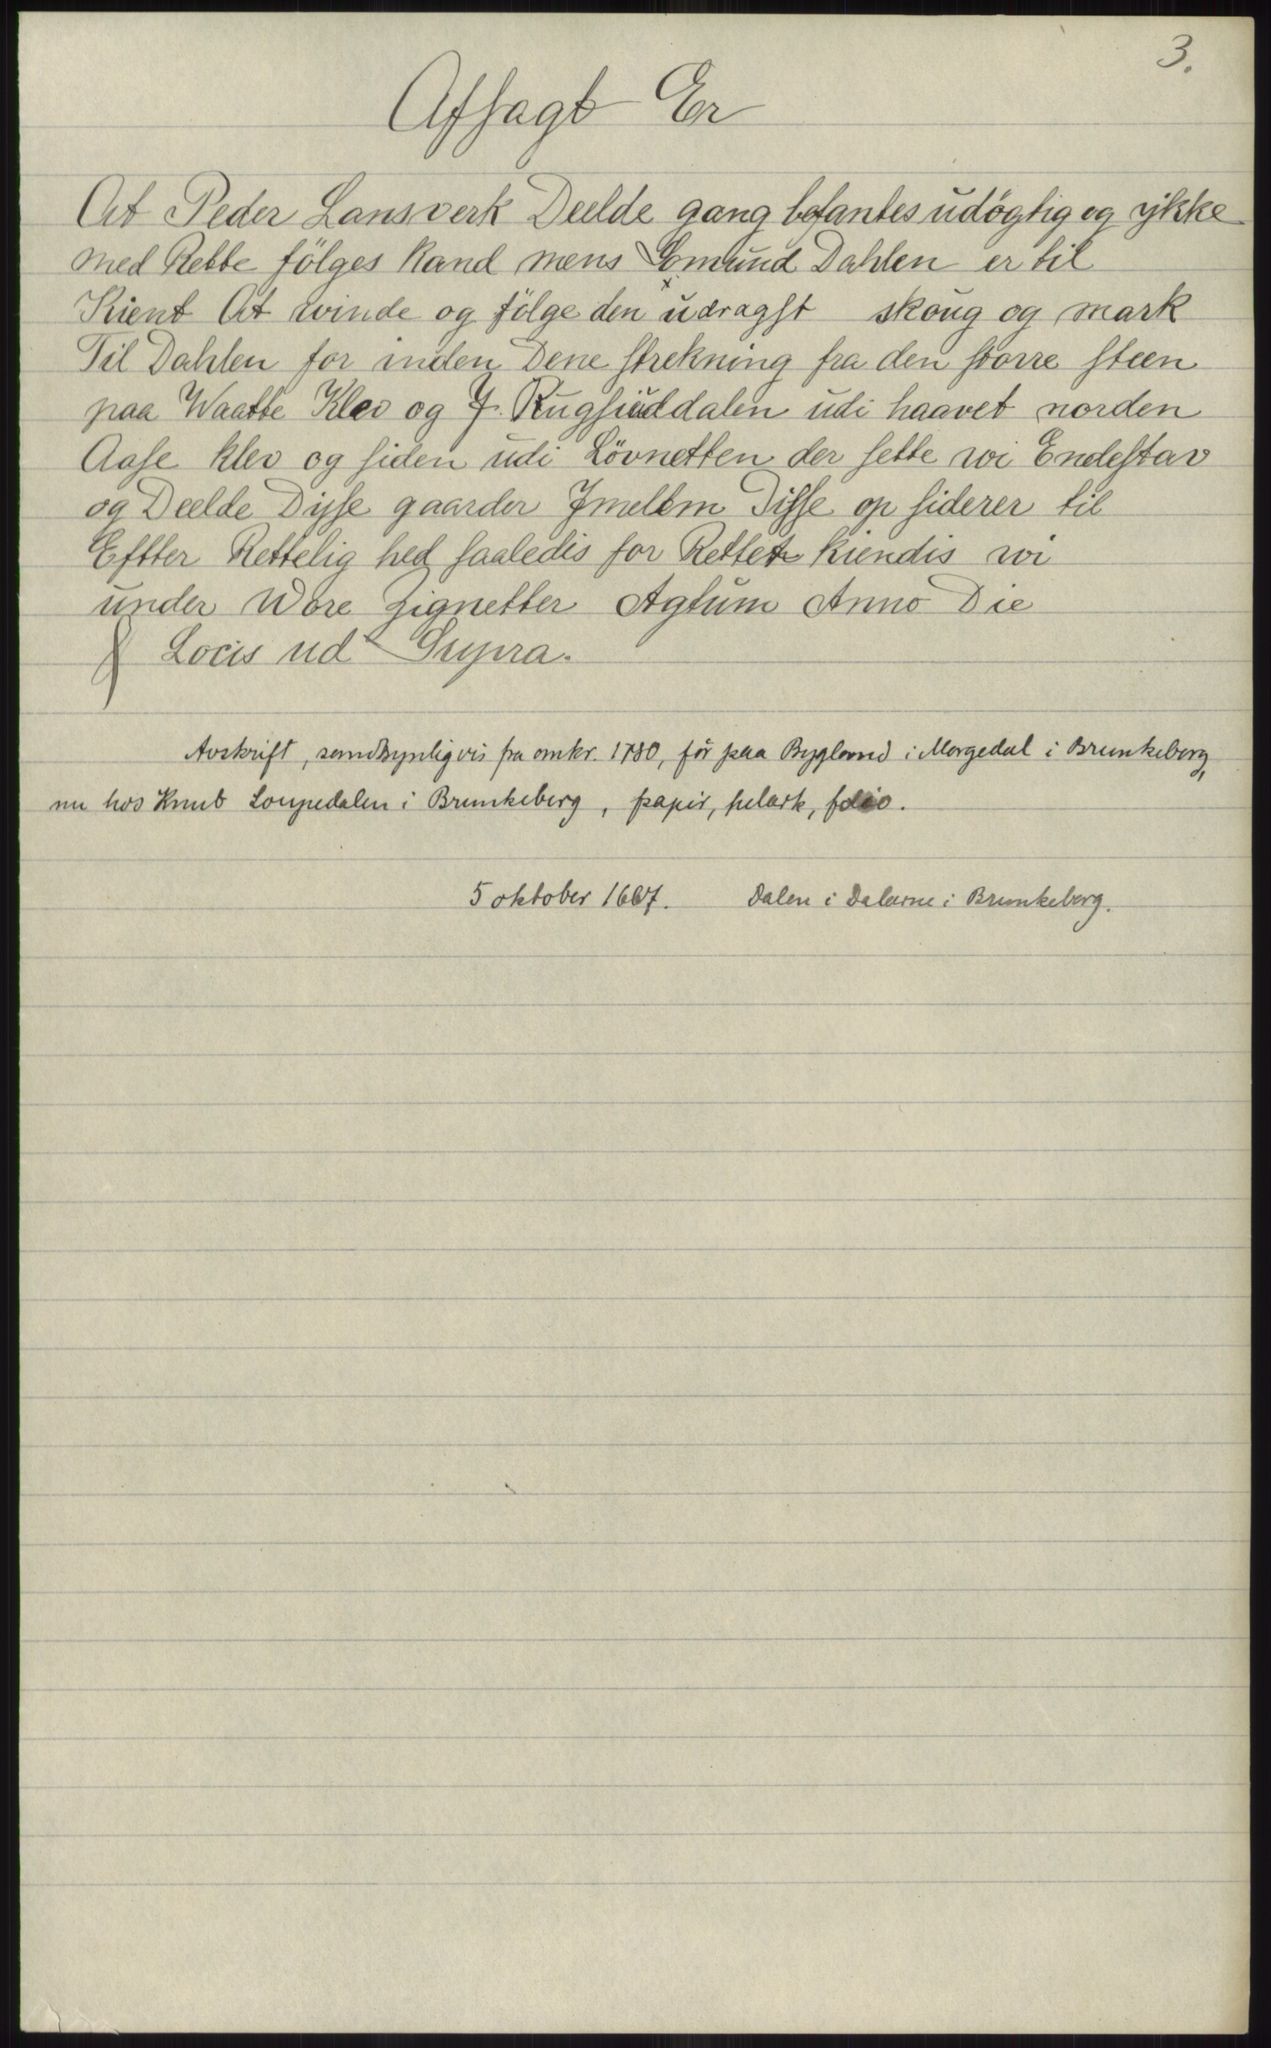 3.
Afsagt Er
At Peder Lansverk Deelde gang befantes udögtig og ijkke
med Rette fölges kand mens Gmund Dahlen er til
Kient At winde og fölge den udragst skoug og mark
Til Dahlen for inden Dene strekning fra den storre steen
paa Waatte Klev og J. Rugsuddalen udi haavet norden
Aase klev og siden udi Lövnetten der sette wi Endestav
og Deelde Dijse gaarder Jmellem Disse op siderer til
Effter Rettelig hed saaledis for Rettet kiendis wi
under Wore Zignetter Agtum Anno Die
Locis ud Supra.
Avskrift, sandsynligvis fra omkr. 1780, för paa Bygland i Morgedal i Brunkeberg,
nu hos Knut Loupedalen i Brunkeberg, papir, helark, folio.
5 oktober 1667. Dalen i Dalarne i Brunkeberg.